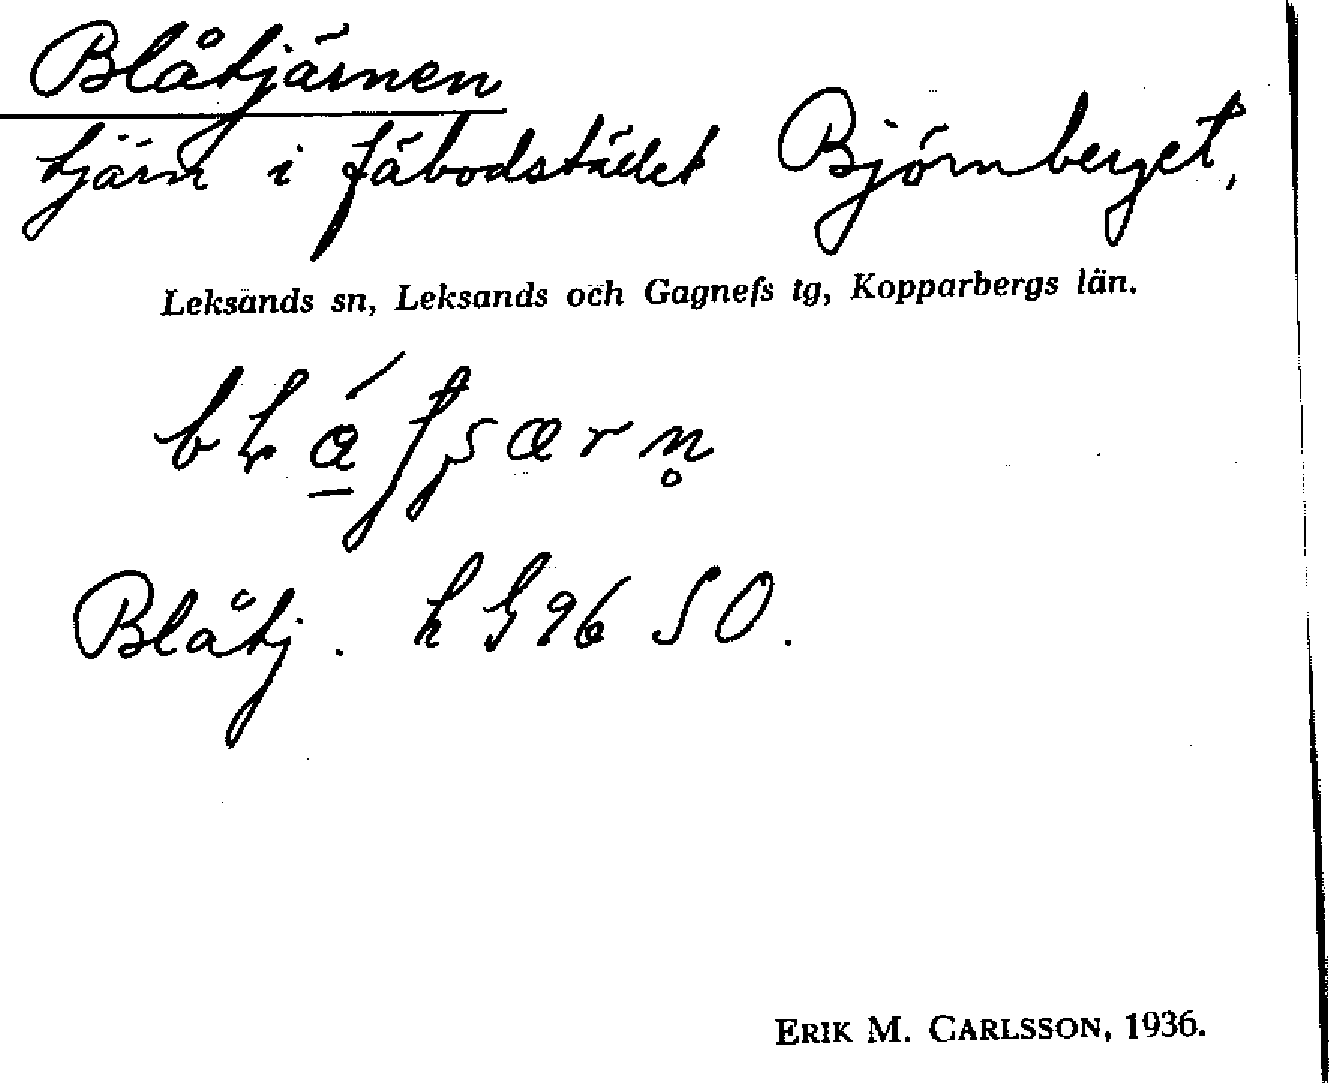 Blåtjärnen
tjärn i fäbodstället Björnberget,
Leksands sn, Leksands och Gagnefs tg, Kopparbergs län.
Blåtj. k G96 SO.
ERIK M. CARLSSON, 1936.